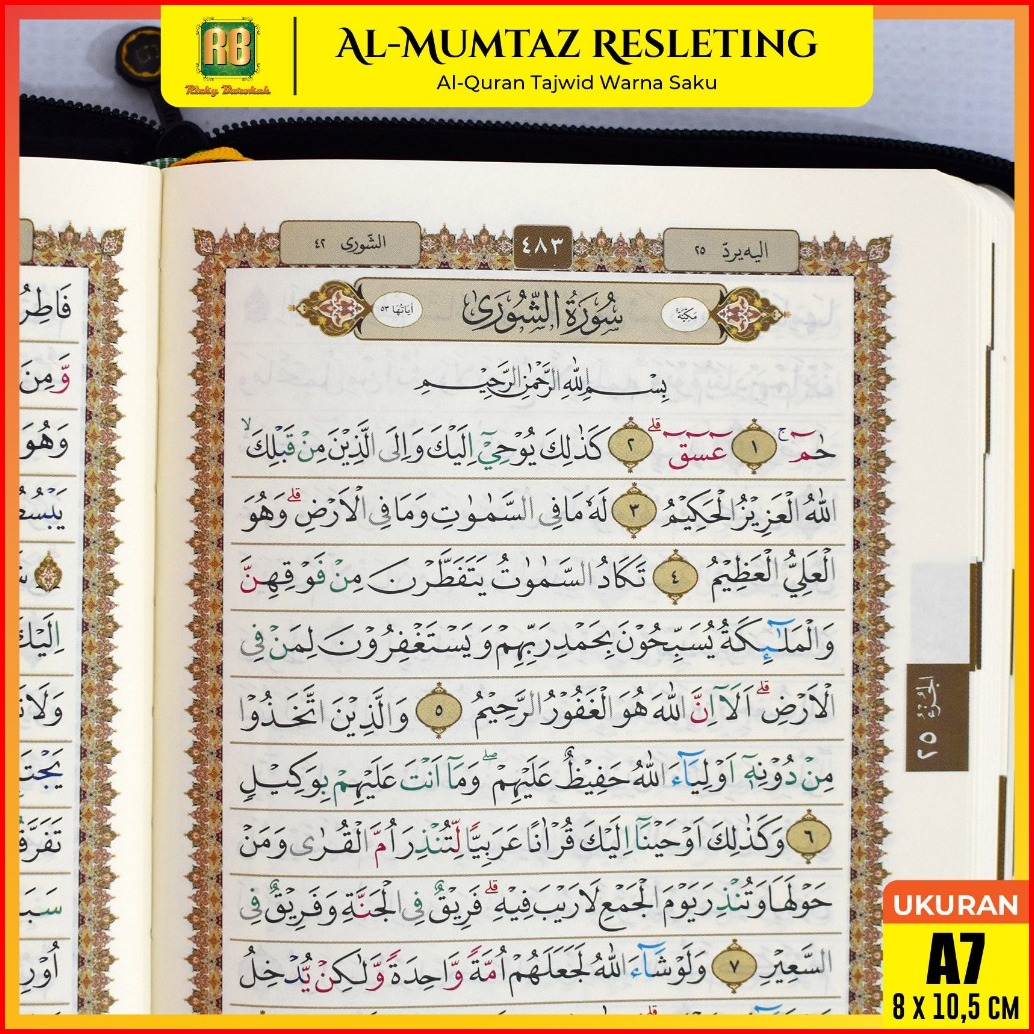 RB
Rizky Barokah
AL-MUMTAZ RESLETING
Al-Quran Tajwid Warna Saku
الشّورى ٤٢
٤٨٣
اليه يردّ ٢٥
مَكِّيَّة
سُوْرَةُ الشُّوْرٰى
اٰيَاتُهَا ٥٣
بِسْمِ اللّٰهِ الرَّحْمٰنِ الرَّحِيْمِ
حٰمۤ ۚ ١ عۤسۤقۤ ۗ ٢ كَذٰلِكَ يُوْحِيْٓ اِلَيْكَ وَاِلَى الَّذِيْنَ مِنْ قَبْلِكَۙ
اللّٰهُ الْعَزِيْزُ الْحَكِيْمُ ٣ لَهٗ مَا فِى السَّمٰوٰتِ وَمَا فِى الْاَرْضِۗ وَهُوَ
الْعَلِيُّ الْعَظِيْمُ ٤ تَكَادُ السَّمٰوٰتُ يَتَفَطَّرْنَ مِنْ فَوْقِهِنَّ
وَالْمَلٰۤىِٕكَةُ يُسَبِّحُوْنَ بِحَمْدِ رَبِّهِمْ وَيَسْتَغْفِرُوْنَ لِمَنْ فِى
الْاَرْضِۗ اَلَآ اِنَّ اللّٰهَ هُوَ الْغَفُوْرُ الرَّحِيْمُ ٥ وَالَّذِيْنَ اتَّخَذُوْا
مِنْ دُوْنِهٖٓ اَوْلِيَاۤءَ اللّٰهُ حَفِيْظٌ عَلَيْهِمْۖ وَمَآ اَنْتَ عَلَيْهِمْ بِوَكِيْلٍ
٦ وَكَذٰلِكَ اَوْحَيْنَآ اِلَيْكَ قُرْاٰنًا عَرَبِيًّا لِّتُنْذِرَ اُمَّ الْقُرٰى وَمَنْ
حَوْلَهَا وَتُنْذِرَ يَوْمَ الْجَمْعِ لَا رَيْبَ فِيْهِۗ فَرِيْقٌ فِى الْجَنَّةِ وَفَرِيْقٌ فِى
السَّعِيْرِ ٧ وَلَوْ شَاۤءَ اللّٰهُ لَجَعَلَهُمْ اُمَّةً وَّاحِدَةً وَّلٰكِنْ يُّدْخِلُ
الجزء ٢٥
فَاطِرُ
وَّمِنَ
وَهُوَ
اِلَيْكَ
UKURAN
A7
8 X 10,5 CM